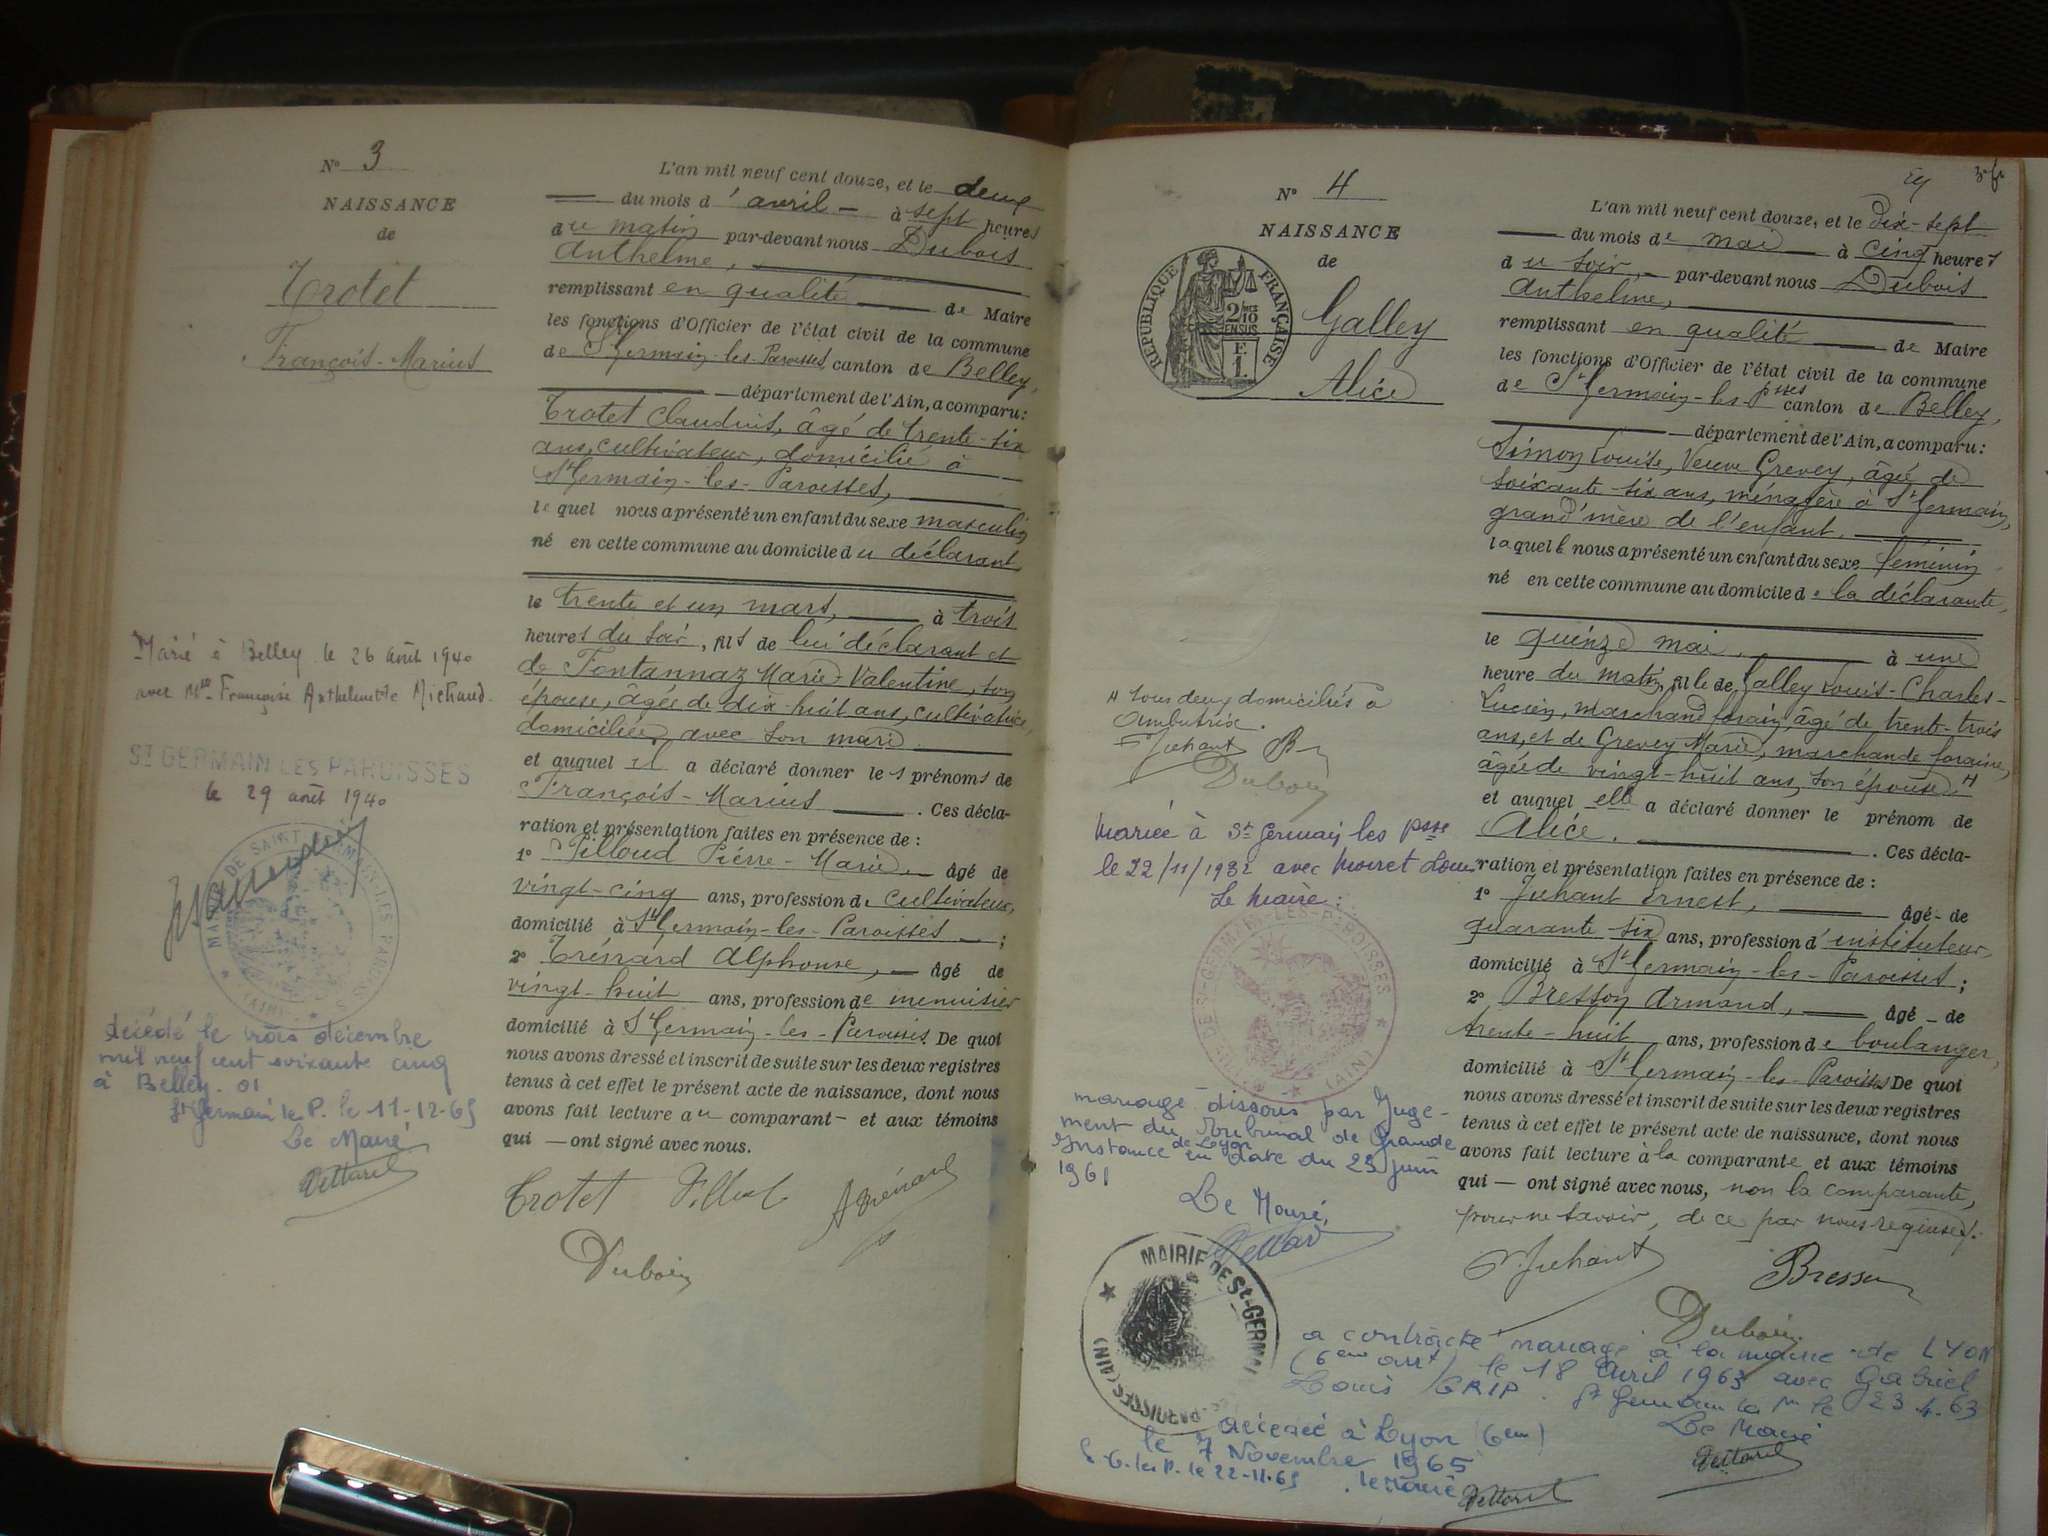 N° 3
NAISSANCE
de
Trotet
François-Marius
L'an mil neuf cent douze, et le deux
du mois d'avril à sept heures
du matin par-devant nous Dubois
Anthelme,
remplissant en qualité de Maire
les fonctions d'Officier de l'état civil de la commune
de St Germain-les-Paroisses, canton de Belley,
département de l'Ain, a comparu:
Trotet Claudius, âgé de trente-six
ans, cultivateur, domicilié à
St Germain-les-Paroisses,
lequel nous a présenté un enfant du sexe masculin
né en cette commune au domicile du déclarant,
le trente et un mars, à trois
heures du soir, fils de lui déclarant et
de Fontannaz Marie-Valentine, son
épouse, âgée de dix-huit ans, cultivatrice,
domiciliée avec son mari
et auquel il a déclaré donner les prénoms de
François-Marius. Ces décla-
ration et présentation faites en présence de :
1° Pilloud Pierre-Marie, âgé de
vingt-cinq ans, profession de cultivateur,
domicilié à St Germain-les-Paroisses ;
2° Trénard Alphonse, âgé de
vingt-huit ans, profession de menuisier
domicilié à St Germain-les-Paroisses. De quoi
nous avons dressé et inscrit de suite sur les deux registres
tenus à cet effet le présent acte de naissance, dont nous
avons fait lecture au comparant et aux témoins
qui ont signé avec nous.
Trotet Pilloud A Trénard
Dubois
Marié à Belley le 26 août 1940
avec Mlle Françoise Anthelmette Michaud.
ST GERMAIN LES PAROISSES
le 29 août 1940
MAIRIE DE SAINT GERMAIN-LES-PAROISSES
(AIN)
décédé le trois décembre
mil neuf cent soixante cinq
à Belley. 01
St Germain le P. le 11-12-65
Le Maire
Vettard
N° 4
NAISSANCE
de
RÉPUBLIQUE FRANÇAISE
2/10
EN SUS
E.
1.
Galley
Alice
L'an mil neuf cent douze, et le dix-sept
du mois de mai à cinq heures
du soir, par-devant nous Dubois
Anthelme,
remplissant en qualité de Maire
les fonctions d'Officier de l'état civil de la commune
de St Germain-les-Psses canton de Belley,
département de l'Ain, a comparu:
Simon Louise, Veuve Grevey, âgée de
soixante-six ans, ménagère à St Germain,
grand'mère de l'enfant.
laquelle nous a présenté un enfant du sexe féminin
né en cette commune au domicile de la déclarante,
le quinze mai à une
heure du matin, fille de Galley Louis-Charles-
Lucien, marchand forain, âgé de trente-trois
ans, et de Grevey Marie, marchande foraine,
âgée de vingt-huit ans, son épouse H
et auquel elle a déclaré donner le prénom de
Alice. Ces décla-
ration et présentation faites en présence de :
1° Juhant Ernest, âgé de
quarante-six ans, profession d'instituteur,
domicilié à St Germain-les-Paroisses ;
2° Bresson Armand, âgé de
trente-huit ans, profession de boulanger,
domicilié à St Germain-les-Paroisses De quoi
nous avons dressé et inscrit de suite sur les deux registres
tenus à cet effet le présent acte de naissance, dont nous
avons fait lecture à la comparante et aux témoins
qui ont signé avec nous, non la comparante,
pour ne savoir, de ce par nous requise.
E. Juhant Bresson
Dubois
H tous deux domiciliés à
Ambutrix.
E Juhant Br
Dubois
Mariée à St Germain les Psses
le 22/11/1932 avec Moiret Louis
Le Maire :
MAIRIE DE ST-GERMAIN-LES-PAROISSES
(AIN)
mariage dissous par Juge-
ment du Tribunal de Grande
Instance de Lyon en date du 23 juin
1961
Le Maire,
Vettard
MAIRIE DE St-GERMAIN-LES-PAROISSES (AIN)
a contracté mariage à la mairie de LYON
(6ème arrt) le 18 Avril 1963 avec Gabriel
Louis GRIP. St Germain les P. le 23.4.63
Le Maire
Vettard
décédée à Lyon (6em)
le 7 Novembre 1965
S-G-les P. le 22-11-65. le Maire
Vettard